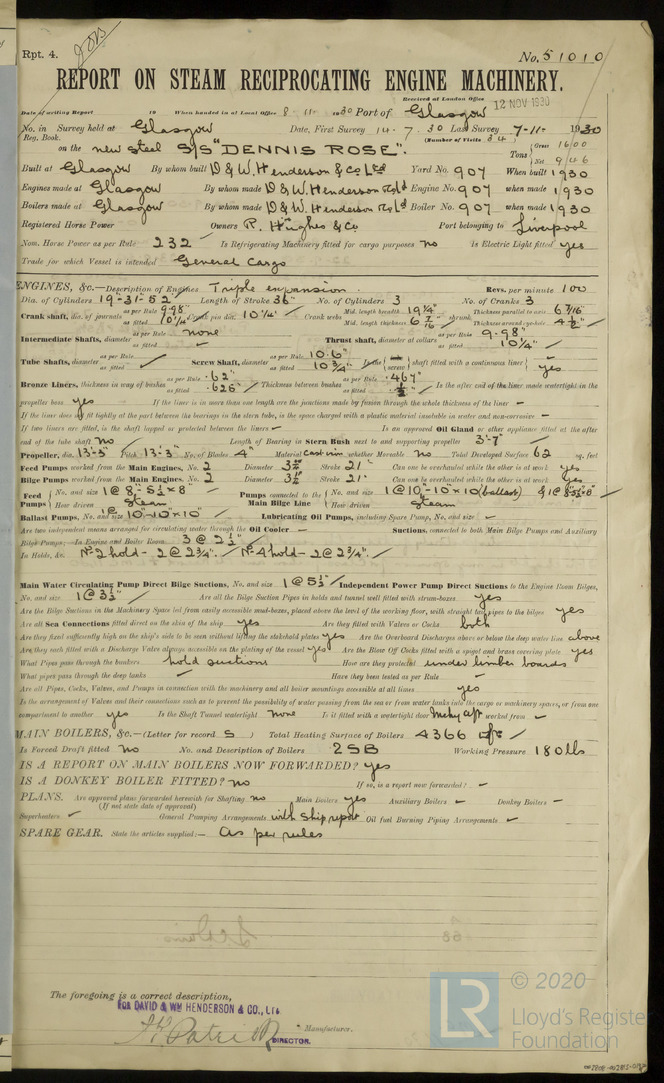 Rpt. 4.
No. 51010
REPORT ON STEAM RECIPROCATING ENGINE MACHINERY.
Received at London Office 12 NOV 1930
Date of writing Report 19 When handed in at Local Office 8-11-1930 Port of Glasgow
No. in Reg. Book. Survey held at Glasgow Date, First Survey 14.7.30 Last Survey 7-11-1930
(Number of Visits 34)
on the new steel S/S "DENNIS ROSE". Tons Gross 1600 Net 946
Built at Glasgow By whom built D & W. Henderson & Co Ltd Yard No. 907 When built 1930
Engines made at Glasgow By whom made D & W. Henderson & Co Ltd Engine No. 907 when made 1930
Boilers made at Glasgow By whom made D & W. Henderson & Co Ltd Boiler No. 907 when made 1930
Registered Horse Power Owners R. Hughes & Co Port belonging to Liverpool
Nom. Horse Power as per Rule 232 Is Refrigerating Machinery fitted for cargo purposes no Is Electric Light fitted yes
Trade for which Vessel is intended General Cargo
ENGINES, &c.—Description of Engines Triple expansion. Revs. per minute 100
Dia. of Cylinders 19"-31"-52" Length of Stroke 36" No. of Cylinders 3 No. of Cranks 3
Crank shaft, dia. of journals as per Rule 9.98" as fitted 10 1/4" Crank pin dia. 10 1/4" Crank webs Mid. length breadth 19 1/4" Mid. length thickness 6 7/16" shrunk Thickness parallel to axis 6 7/16" Thickness around eyehole 4 1/2"
Intermediate Shafts, diameter as per Rule none as fitted Thrust shaft, diameter at collars as per Rule 9.98" as fitted 10 1/4"
Tube Shafts, diameter as per Rule as fitted Screw Shaft, diameter as per Rule 10.6" as fitted 10 3/4" Is the screw shaft fitted with a continuous liner yes
Bronze Liners, thickness in way of bushes as per Rule .62" as fitted .625" Thickness between bushes as per Rule .467" as fitted 1/2" Is the after end of the liner made watertight in the
propeller boss yes If the liner is in more than one length are the junctions made by fusion through the whole thickness of the liner –
If the liner does not fit tightly at the part between the bearings in the stern tube, is the space charged with a plastic material insoluble in water and non-corrosive –
If two liners are fitted, is the shaft lapped or protected between the liners – Is an approved Oil Gland or other appliance fitted at the after
end of the tube shaft no Length of Bearing in Stern Bush next to and supporting propeller 3'-7"
Propeller, dia. 13'-3" Pitch 13'-3" No. of Blades 4 Material Cast iron whether Moveable no Total Developed Surface 62 sq. feet
Feed Pumps worked from the Main Engines, No. 2 Diameter Stroke 21" Can one be overhauled while the other is at work yes
Bilge Pumps worked from the Main Engines, No. 2 Diameter Stroke 21" Can one be overhauled while the other is at work yes
Feed Pumps No. and size 1 @ 8"-5 1/2" x 8" How driven Steam Pumps connected to the Main Bilge Line No. and size 1 @ 10"-10" x 10 (ballast) & 1 @ How driven Steam
Ballast Pumps, No. and size 1 @ 10"-10" x 10" Lubricating Oil Pumps, including Spare Pump, No. and size –
Are two independent means arranged for circulating water through the Oil Cooler – Suctions, connected to both Main Bilge Pumps and Auxiliary
Bilge Pumps;—In Engine and Boiler Room 3 @ 2 1/2"
In Holds, &c. No 2 hold – 2 @ 2 3/4". No 4 hold – 2 @ 2 3/4".
Main Water Circulating Pump Direct Bilge Suctions, No. and size 1 @ 5 1/2" Independent Power Pump Direct Suctions to the Engine Room Bilges,
No. and size 1 @ 3 1/2" Are all the Bilge Suction Pipes in holds and tunnel well fitted with strum-boxes yes
Are the Bilge Suctions in the Machinery Space led from easily accessible mud-boxes, placed above the level of the working floor, with straight tail pipes to the bilges yes
Are all Sea Connections fitted direct on the skin of the ship yes Are they fitted with Valves or Cocks both
Are they fixed sufficiently high on the ship's side to be seen without lifting the stokehold plates yes Are the Overboard Discharges above or below the deep water line above
Are they each fitted with a Discharge Valve always accessible on the plating of the vessel yes Are the Blow Off Cocks fitted with a spigot and brass covering plate yes
What Pipes pass through the bunkers hold suctions How are they protected under limber boards
What pipes pass through the deep tanks – Have they been tested as per Rule –
Are all Pipes, Cocks, Valves, and Pumps in connection with the machinery and all boiler mountings accessible at all times yes
Is the arrangement of Valves and their connections such as to prevent the possibility of water passing from the sea or from water tanks into the cargo or machinery spaces, or from one
compartment to another yes Is the Shaft Tunnel watertight none Is it fitted with a watertight door Mchy aft worked from –
MAIN BOILERS, &c.—(Letter for record S) Total Heating Surface of Boilers 4366
Is Forced Draft fitted no No. and Description of Boilers 2 SB Working Pressure 180 lbs
IS A REPORT ON MAIN BOILERS NOW FORWARDED? yes
IS A DONKEY BOILER FITTED? no If so, is a report now forwarded? –
PLANS. Are approved plans forwarded herewith for Shafting no Main Boilers yes Auxiliary Boilers – Donkey Boilers –
(If not state date of approval)
Superheaters – General Pumping Arrangements with Ship report Oil fuel Burning Piping Arrangements –
SPARE GEAR. State the articles supplied:— as per rules
The foregoing is a correct description,
FOR DAVID & WM HENDERSON & CO., LTD.
Manufacturer.
DIRECTOR.
LR
© 2020
Lloyd's Register
Foundation